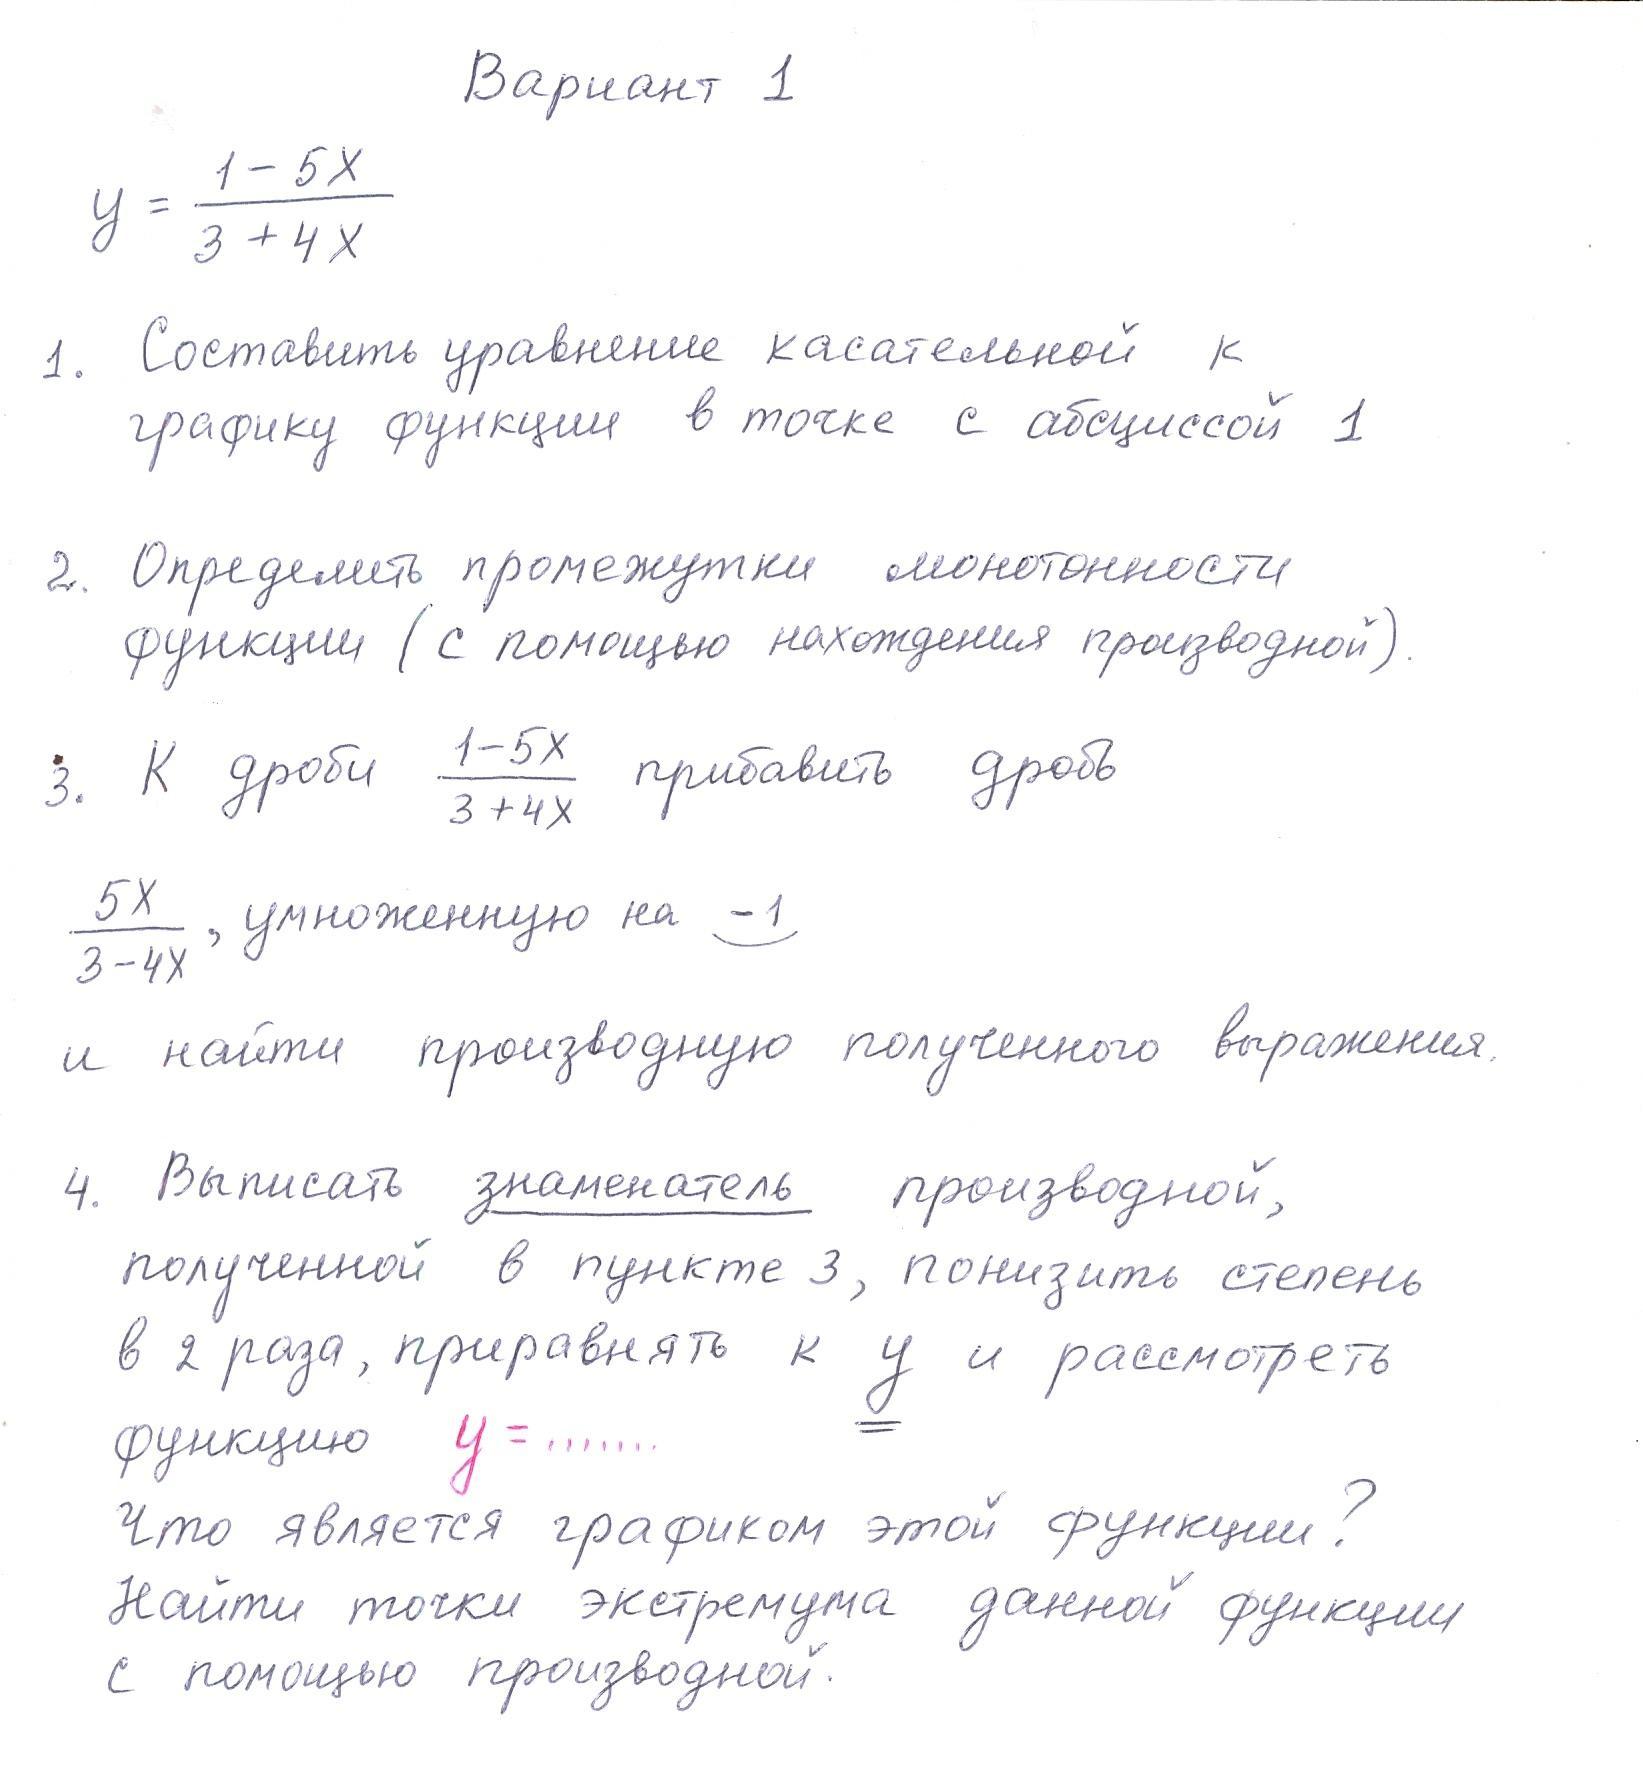 Вариант 1
y = (1 - 5x)/(3 + 4x)
1. Составить уравнение касательной к
графику функции в точке с абсциссой 1
2. Определить промежутки монотонности
функции (с помощью нахождения производной).
3. К дроби (1-5x)/(3+4x) прибавить дробь
5x/(3-4x), умноженную на -1
и найти производную полученного выражения.
4. Выписать знаменатель производной,
полученной в пункте 3, понизить степень
в 2 раза, приравнять к y и рассмотреть
функцию y = .......
Что является графиком этой функции?
Найти точки экстремума данной функции
с помощью производной.